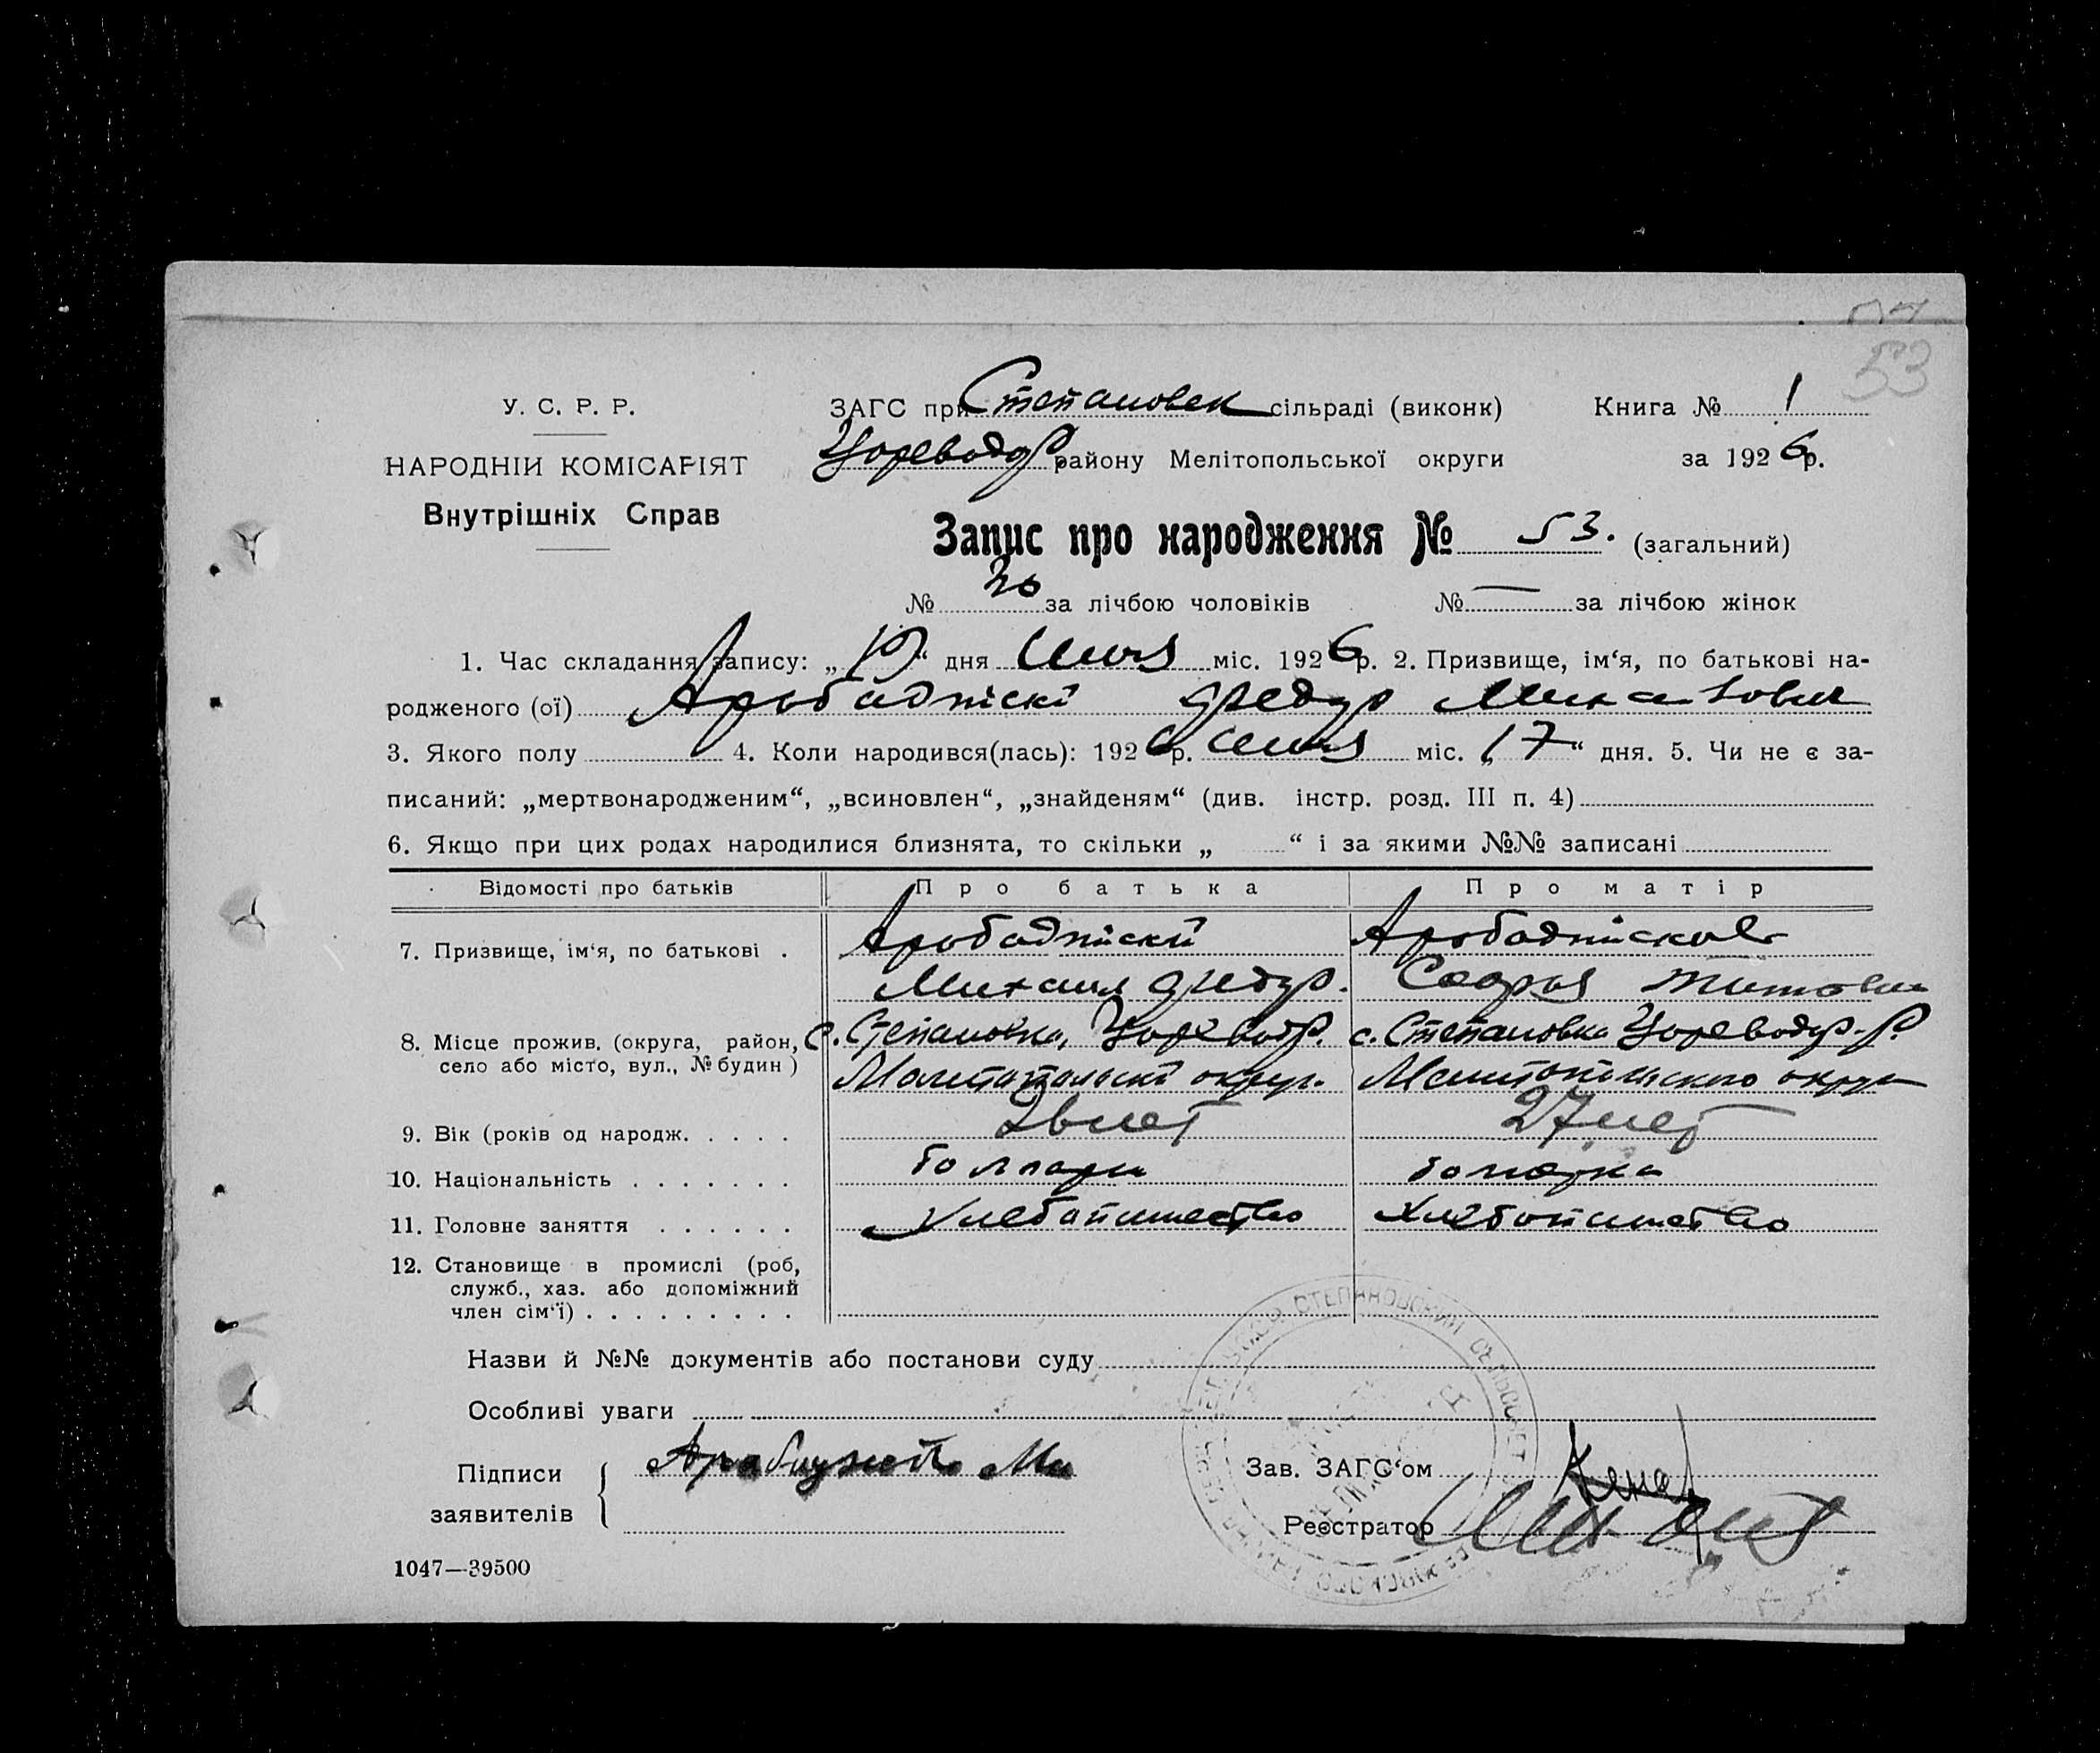 53
У. С. Р. Р.
ЗАГС при Степановск сільраді (виконк)
Книга № 1
НАРОДНІЙ КОМІСАРІЯТ
Цареводар району Мелітопольської округи
за 1926 р.
Внутрішніх Справ
Запис про народження № 53. (загальний)
№ 30 за лічбою чоловіків № — за лічбою жінок
1. Час складання запису: „19“ дня Июля міс. 1926 р. 2. Призвище, ім‘я, по батькові на-
родженого (ої) Арабаджіскі Федор Михайлович
3. Якого полу 4. Коли народився(лась): 1926 р. Июля міс. „17“ дня. 5. Чи не є за-
писаний: „мертвонародженим“, „всиновлен“, „знайденям“ (див. інстр. розд. III п. 4)
6. Якщо при цих родах народилися близнята, то скільки „ “ і за якими №№ записані
Відомості про батьків Про батька Про матір
7. Призвище, ім‘я, по батькові .
Михаил Федор. Софья Титовна
8. Місце прожив. (округа, район, с. Степановка, Цареводар. с. Степановка Цареводар. р.
село або місто, вул., № будин) Мелитопольскі округ. Мелитопольского округа
9. Вік (років од народж. . . . . лет 27 лет
10. Національність . . . . . . . болгары болгарка
11. Головне заняття . . . . . . Хлебопашество Хлебопашество
12. Становище в промислі (роб,
служб., хаз. або допоміжний
член сім‘ї) . . . . . . . . .
Назви й №№ документів або постанови суду
Особливі уваги
Підписи
заявителів
Зав. ЗАГС‘ом
Реєстратор
СТЕПАНОВСКИЙ СЕЛЬСОВЕТ
1047—39500